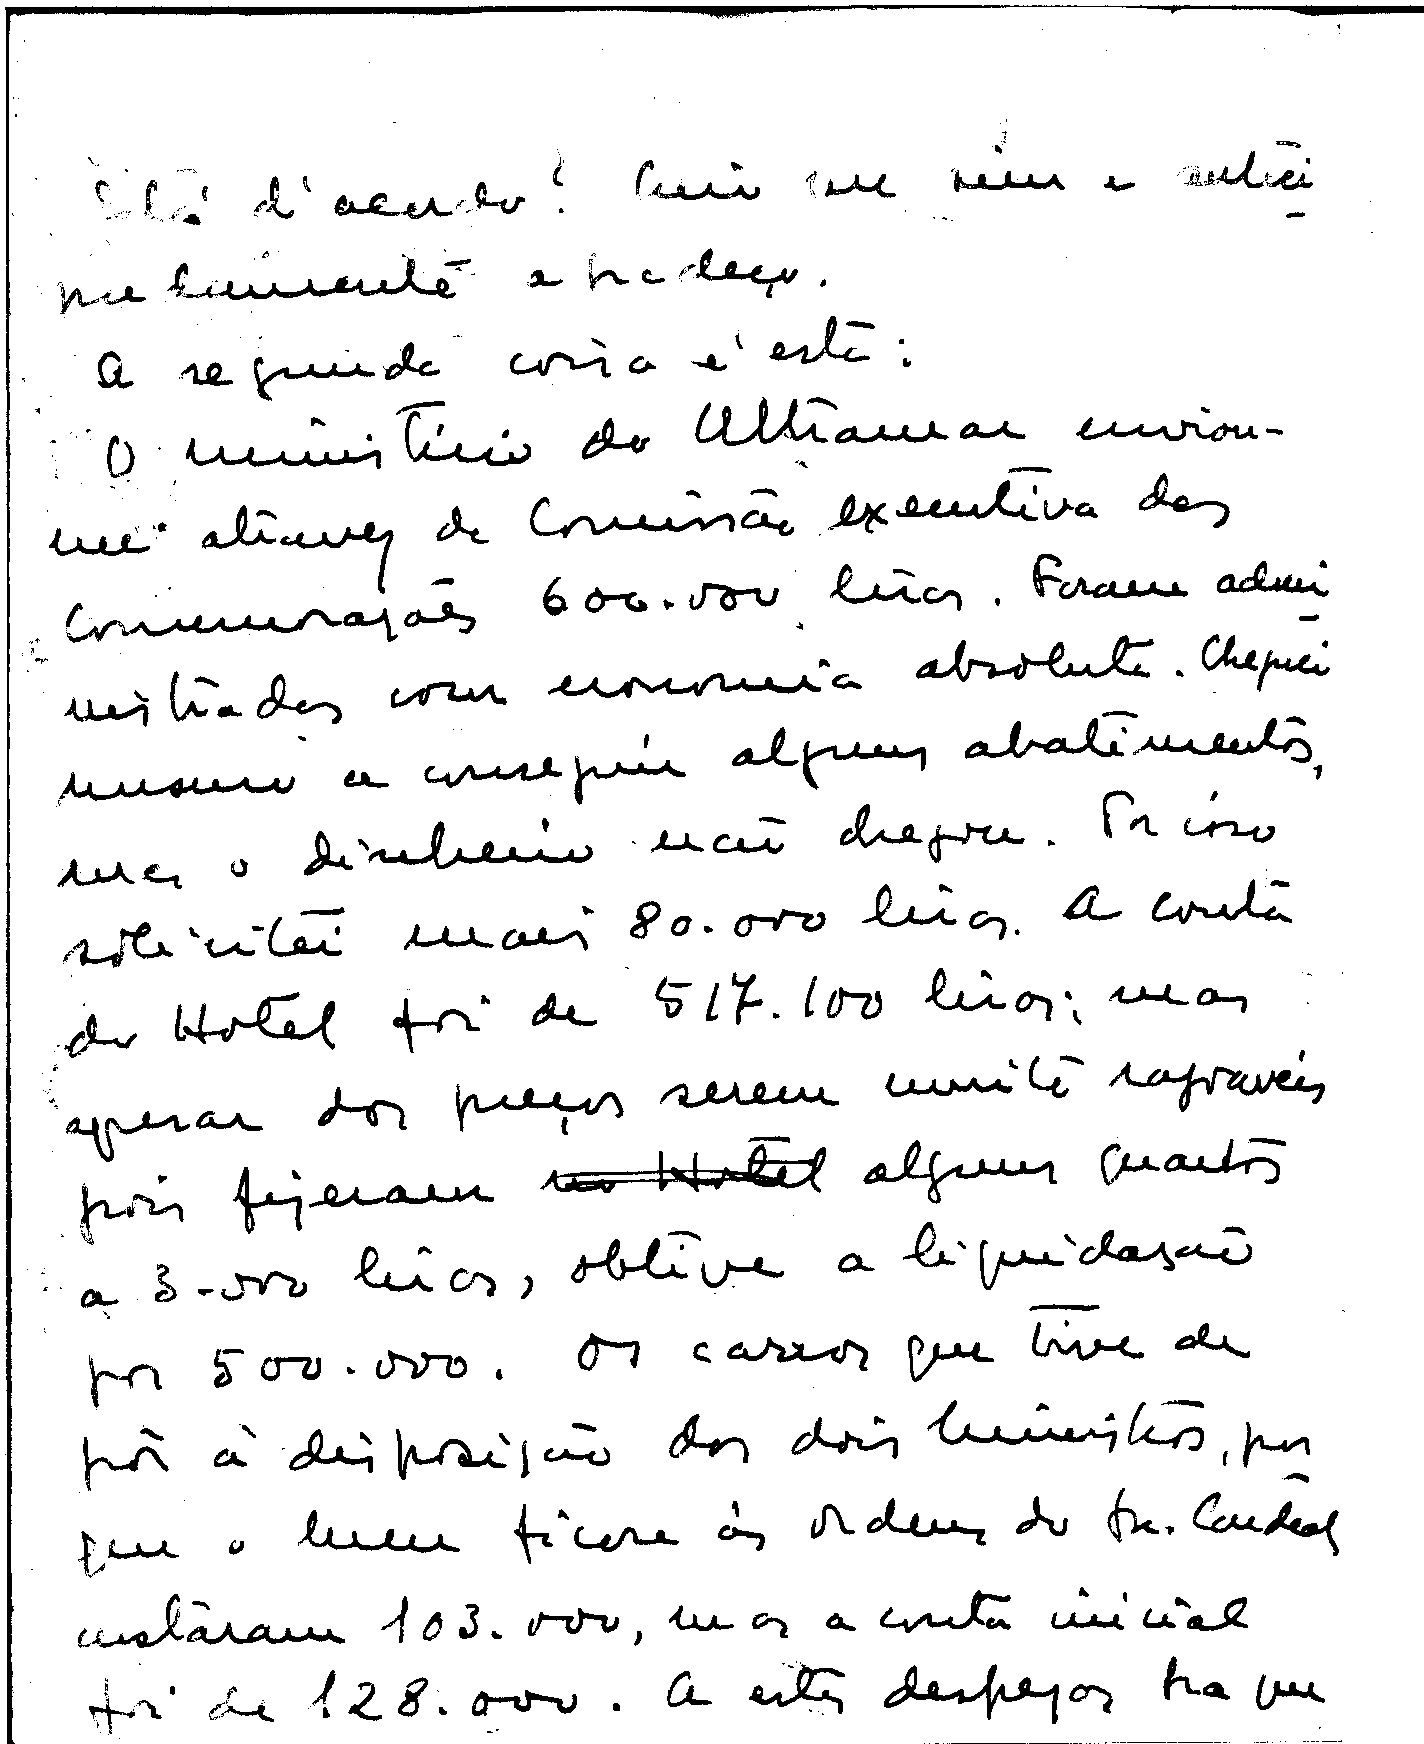 Está d'acordo? Creio que sim e anteci
padamente agradeço.
A segunda coisa é esta:
O ministério do Ultramar enviou-
me através da Comissão executiva das
Comemorações 600.000 liras. Foram admi
nistradas com economia absoluta. Cheguei
mesmo a conseguir alguns abatimentos,
mas o dinheiro não chegou. Por isso
solicitei mais 80.000 liras. A conta
do Hotel foi de 517.100 liras; mas
apesar dos preços serem muito razoaveis
pois fizeram no Hotel alguns quartos
a 3.000 liras, obtive a liquidação
por 500.000. Os carros que tive de
pôr à disposição dos dois Ministros, por
que o meu ficara às ordens do Sr. Cardeal
custaram 103.000, mas a conta inicial
foi de 128.000. A estas despezas ha que